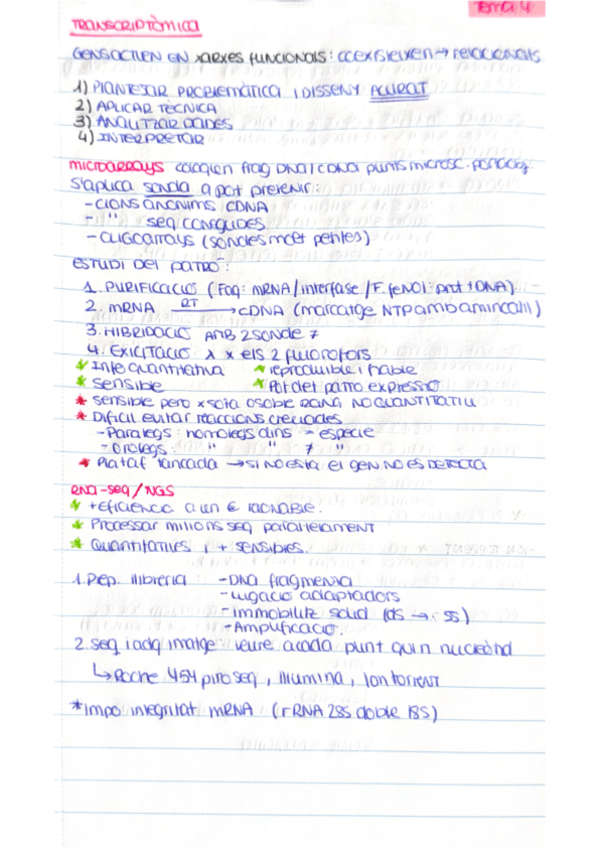 Tema 4
TRANSCRIPTÒMICA
GENS ACTUEN EN XARXES FUNCIONALS: coexisteixen → relacionats
1) PLANTEJAR PROBLEMÀTICA i DISSENY ACURAT
2) APLICAR TÈCNICA
3) ANALITZAR DADES
4) INTERPRETAR
MICROARRAYS frag DNA/cDNA punts microsc.
S'aplica sonda a pot prevenir:
- CLONS ANÒNIMS cDNA
- " seq CONEGUDES
- OLIGOARRAYS (sondes molt petites)
ESTUDI DEL PATRÓ:
1. PURIFICACIÓ (Faq: mRNA/interfase/F. fenol: prot + DNA)
2. mRNA RT→ cDNA (marcatge NTP amb)
3. HIBRIDACIÓ AMB 2 SONDE ≠
4. EXCITACIÓ λ x els 2 fluorofors
* Info quantitativa * reproduible i fiable
* sensible * Pot det patró expressió
* sensible però x sota o sobre RANG NO QUANTITATIU
* Difícil evitar reaccions creuades
- Paràlegs: homòlegs dins = espècie
- Òrolegs: " " ≠ "
* Plataf tancada → si no està el gen NO ES DETECTA
RNA-seq/NGS
* + eficiència a un € raonable.
* Processar milions seq paral·lelament
* Quantitatives i + sensibles.
1. Prep. llibreria: - DNA fragmenta
- Lligació adaptadors
- immobilitz sòlid (ds → ss)
- Amplificació.
2. seq i adq imatge: veure a cada punt quin nucleòtid
↳ Roche 454 piroseq, Illumina, Ion torrent
*Impo integritat mRNA (rRNA 28S doble 18S)